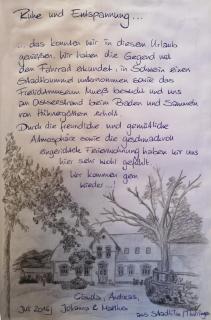 Ruhe und Entspannung...
...das konnten wir in diesem Urlaub
genießen. Wir haben die Gegend mit
dem Fahrrad erkundet, in Schwerin einen
Stadtbummel unternommen sowie das
Freilichtmuseum Mueß besucht und uns
am Ostseestrand beim Baden und Sammeln
von Hühnergöttern erholt.
Durch die freundliche und gemütliche
Atmosphäre sowie die geschmackvoll
eingerichtete Ferienwohnung haben wir uns
hier sehr wohl gefühlt.
Wir kommen gern
wieder...!
Claudia, Andreas,
Juli 2016 Johanna & Martha
aus Stadtilm/Thüringen